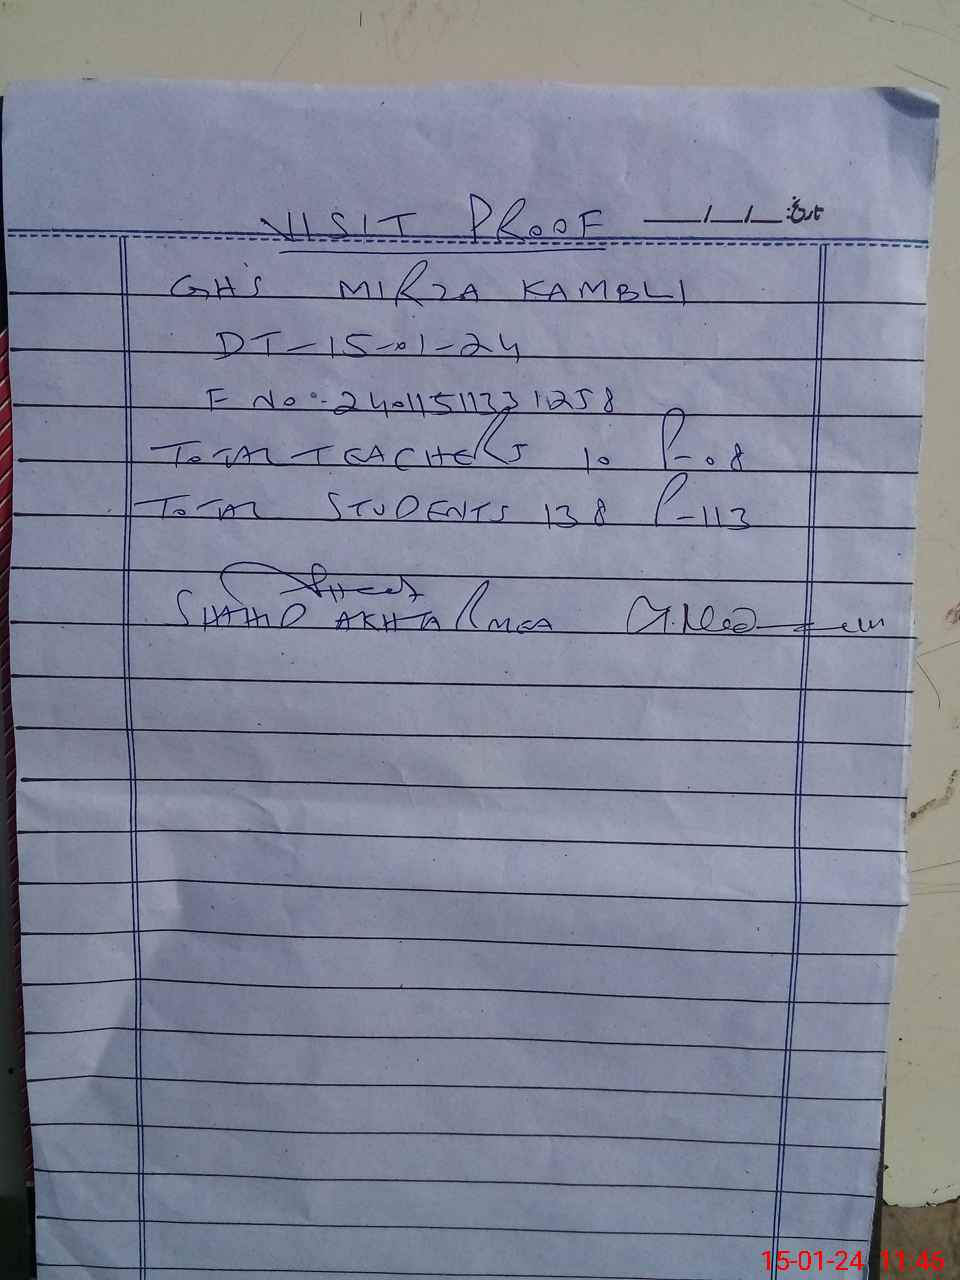 VISIT PROOF __/__/__ تاریخ:
GHS MIRZA KAMBLI
DT-15-01-24
F No:-24011511331258
TOTAL TEACHERS 10 P-08
TOTAL STUDENTS 138 P-113
SHAHID AKHTAR MEA
15-01-24 11:46